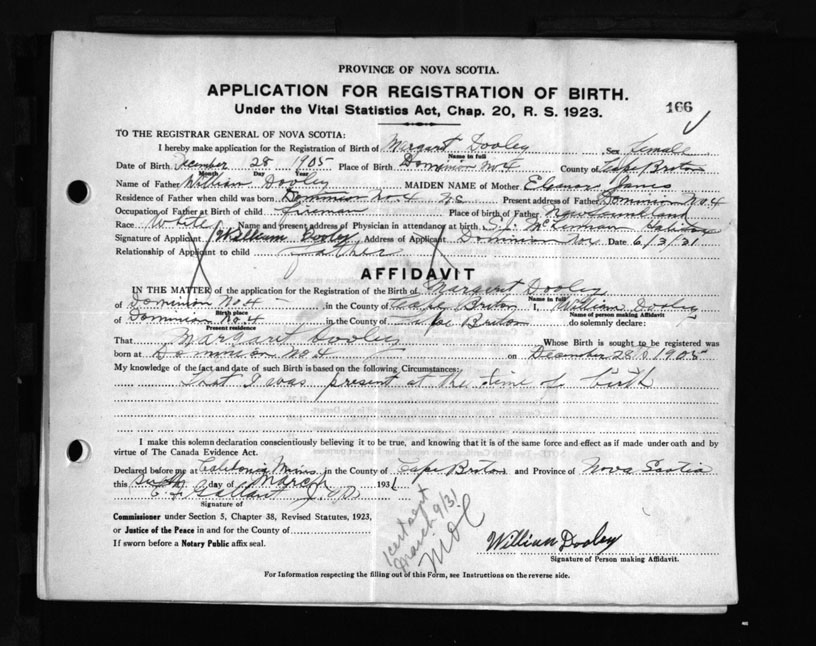 PROVINCE OF NOVA SCOTIA.
APPLICATION FOR REGISTRATION OF BIRTH.
Under the Vital Statistics Act, Chap. 20, R. S. 1923.
166
TO THE REGISTRAR GENERAL OF NOVA SCOTIA:
I hereby make application for the Registration of Birth of Margaret Dooley Sex female
Name in full
Date of Birth December 28 1905 Place of Birth Dominion No 4 County of Cape Breton
Month Day Year
Name of Father William Dooley MAIDEN NAME of Mother Eleanor Janes
Residence of Father when child was born Dominion No. 4 N.S. Present address of Father Dominion No. 4
Occupation of Father at Birth of child fireman Place of birth of Father Newfoundland
Race White Name and present address of Physician in attendance at birth Halifax
Signature of Applicant William Dooley Address of Applicant Dominion No 4 Date 6/3/31
Relationship of Applicant to child Father
AFFIDAVIT
IN THE MATTER of the application for the Registration of the Birth of Margaret Dooley
Name in full
of Dominion No. 4 in the County of Cape Breton I, William Dooley
Birth place Name of person making Affidavit
of Dominion No. 4 in the County of Cape Breton do solemnly declare:
Present residence
That Margaret Dooley Whose Birth is sought to be registered was
born at Dominion No 4 on December 28 1905
My knowledge of the fact and date of such Birth is based on the following Circumstances:
That I was present at the time of birth
I make this solemn declaration conscientiously believing it to be true, and knowing that it is of the same force and effect as if made under oath and by
virtue of The Canada Evidence Act.
Declared before me at Caledonia Mines in the County of Cape Breton and Province of Nova Scotia
this Sixth day of March 1931
Gallant J.P.
Signature of
Commissioner under Section 5, Chapter 38, Revised Statutes, 1923,
or Justice of the Peace in and for the County of
If sworn before a Notary Public affix seal.
March 9/31
William Dooley
Signature of Person making Affidavit.
For Information respecting the filling out of this Form, see Instructions on the reverse side.